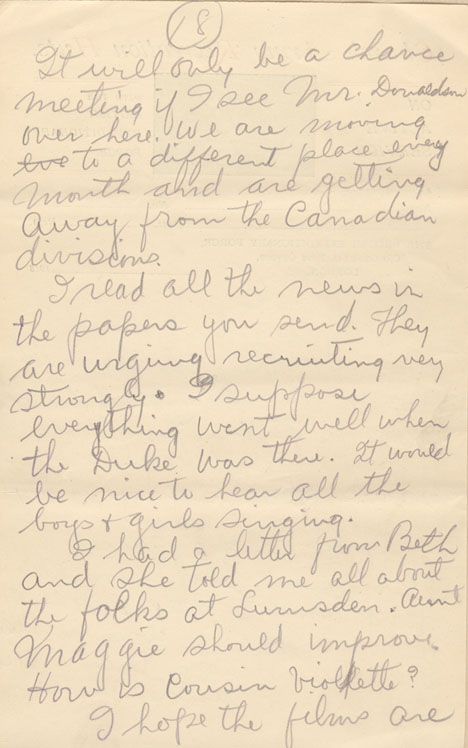 18
It will only be a chance
meeting if I see Mr. Donaldson
over here. We are moving
eve to a different place every
month and are getting
away from the Canadian
divisions.
I read all the news in
the papers you send. They
are urging recruiting very
strongly. I suppose
everything went well when
the Duke was there. It would
be nice to hear all the
boys & girls singing.
I had a letter from Beth
and she told me all about
the folks at Lumsden. Aunt
Maggie should improve.
How is Cousin Violette?
I hope the films are